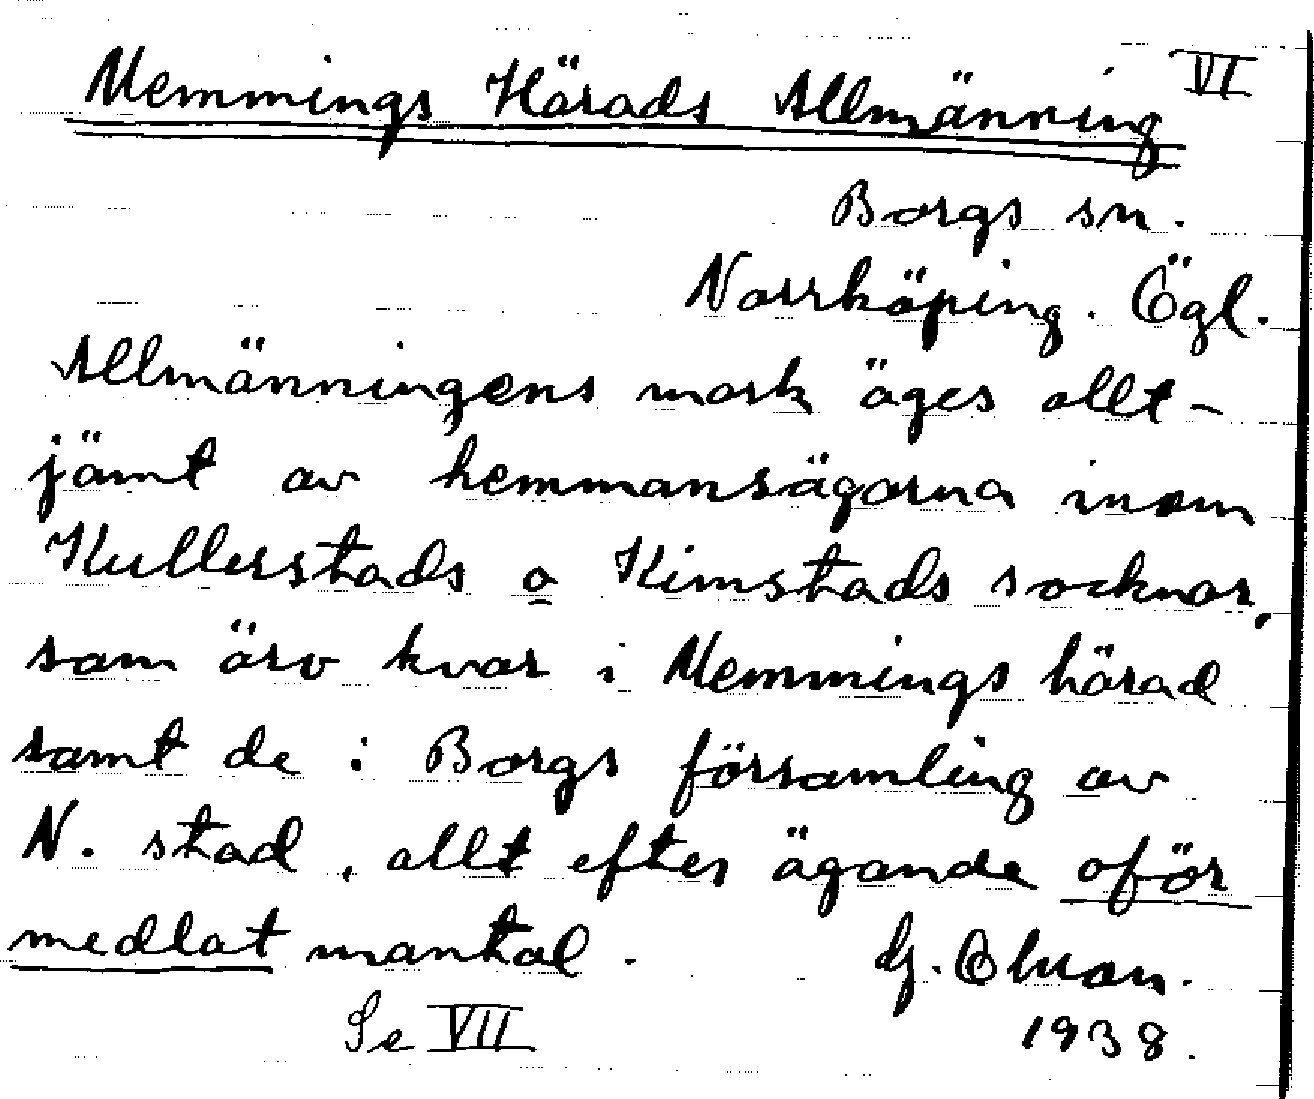 Memmings Härads Allmänning VI
Borgs sn.
Norrköping. Ögl.
Allmänningens mark äges allt-
jämt av hemmansägarna inom
Kullerstads o Kimstads socknar,
som äro kvar i Memmings härad
samt de i Borgs församling av
N. stad, allt efter ägande oför
medlat mantal. G.
Se VII 1938.